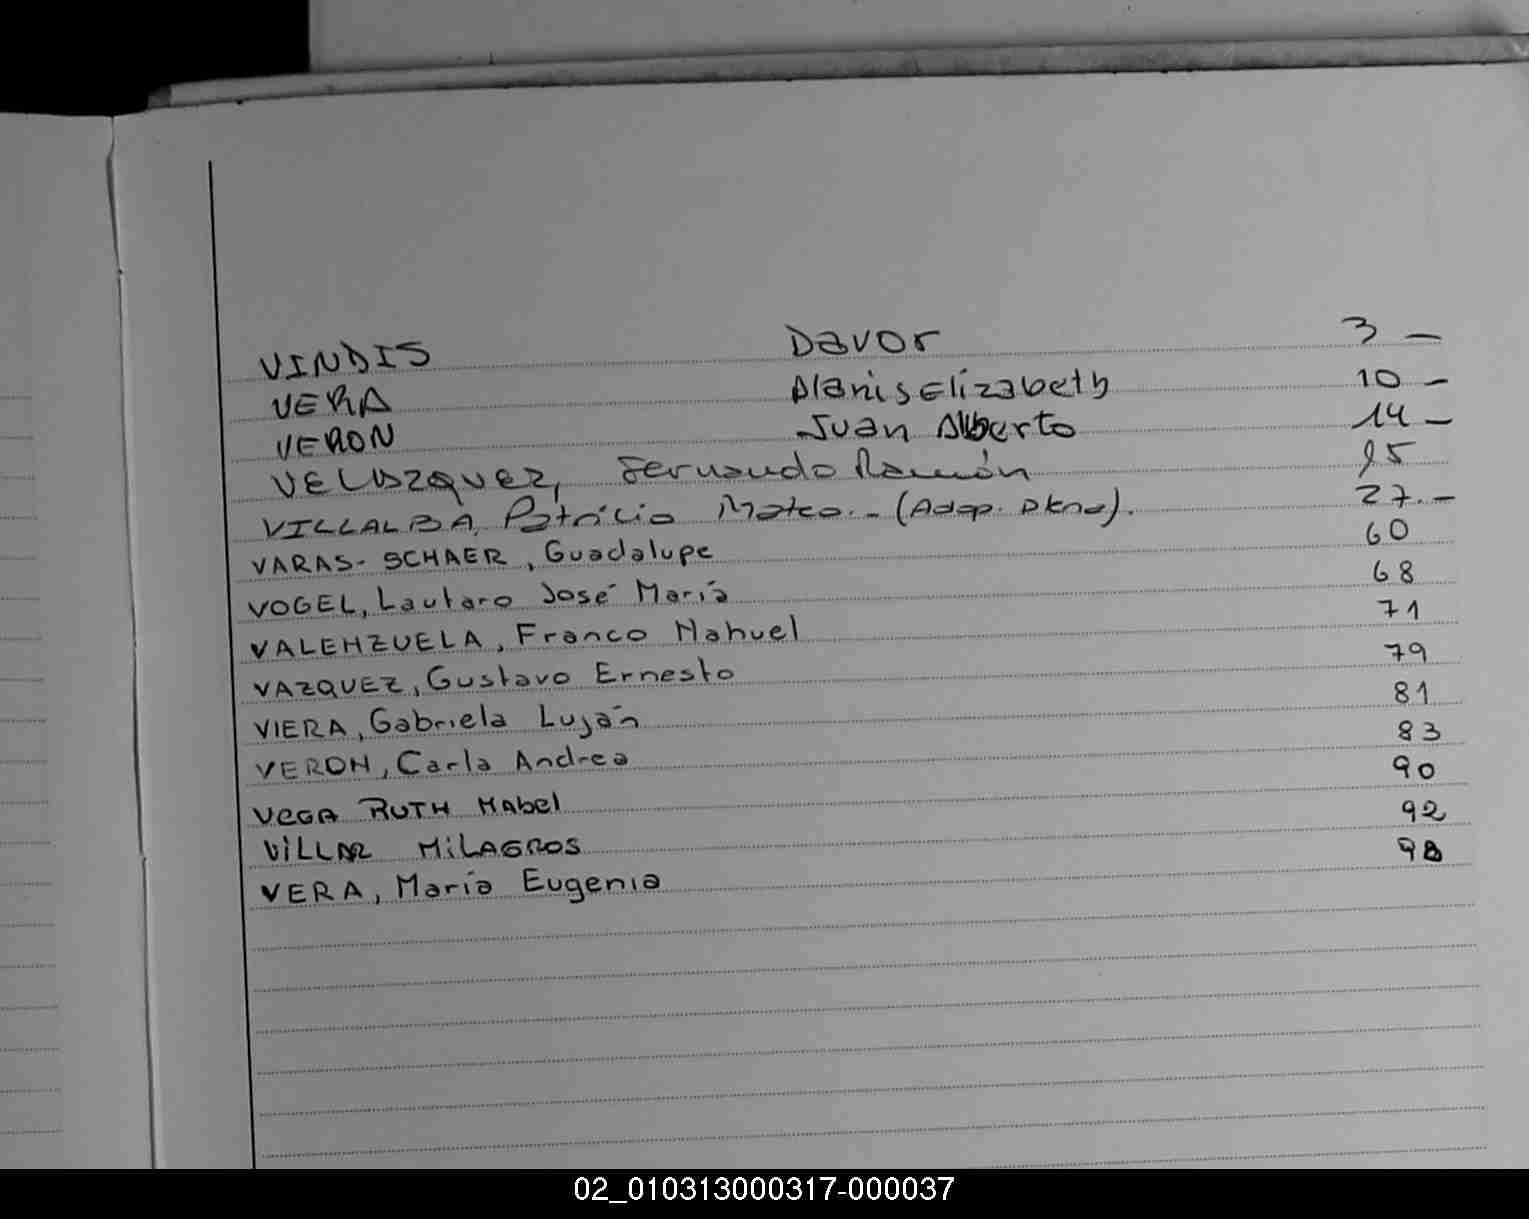 VINDIS Davor 3 -
VERA Alanis Elizabeth 10 -
VERON Juan Alberto 14 -
VELAZQUEZ, Fernando Ramón 25
VILLALBA, Patricio Mateo.- (Adop. Plena). 27.-
VARAS-SCHAER, Guadalupe 60
VOGEL, Lautaro José María 68
VALENZUELA, Franco Nahuel 71
VAZQUEZ, Gustavo Ernesto 79
VIERA, Gabriela Luján 81
VERON, Carla Andrea 83
VEGA RUTH MAbel 90
ViLLAR MiLAGROS 92
VERA, María Eugenia 98
02_010313000317-000037